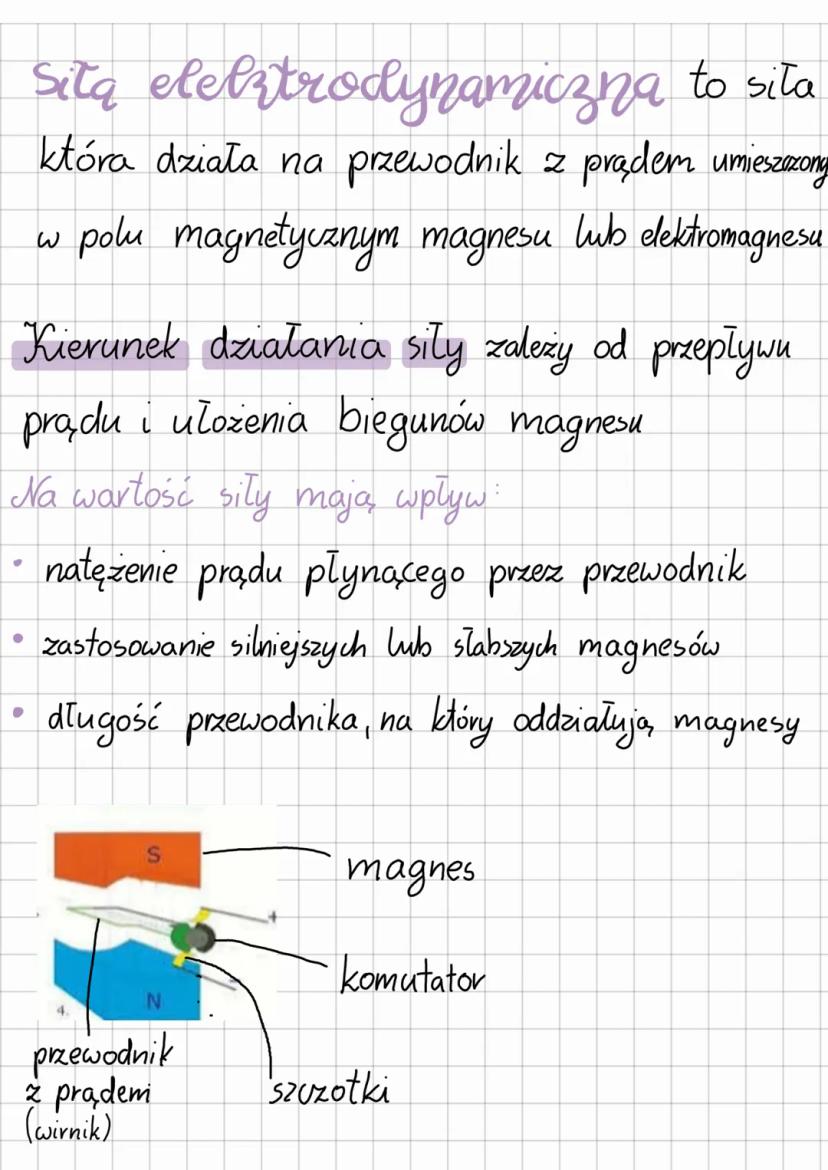 Siłą elektrodynamiczną to siła
która działa na przewodnik z prądem umieszczony
w polu magnetycznym magnesu lub elektromagnesu
Kierunek działania siły zależy od przepływu
prądu i ułożenia biegunów magnesu
Na wartość siły mają wpływ:
• natężenie prądu płynącego przez przewodnik
• zastosowanie silniejszych lub słabszych magnesów
• długość przewodnika, na który oddziałują magnesy
S
magnes
+
komutator
-
N
4.
przewodnik
z prądem
(wirnik)
szczotki